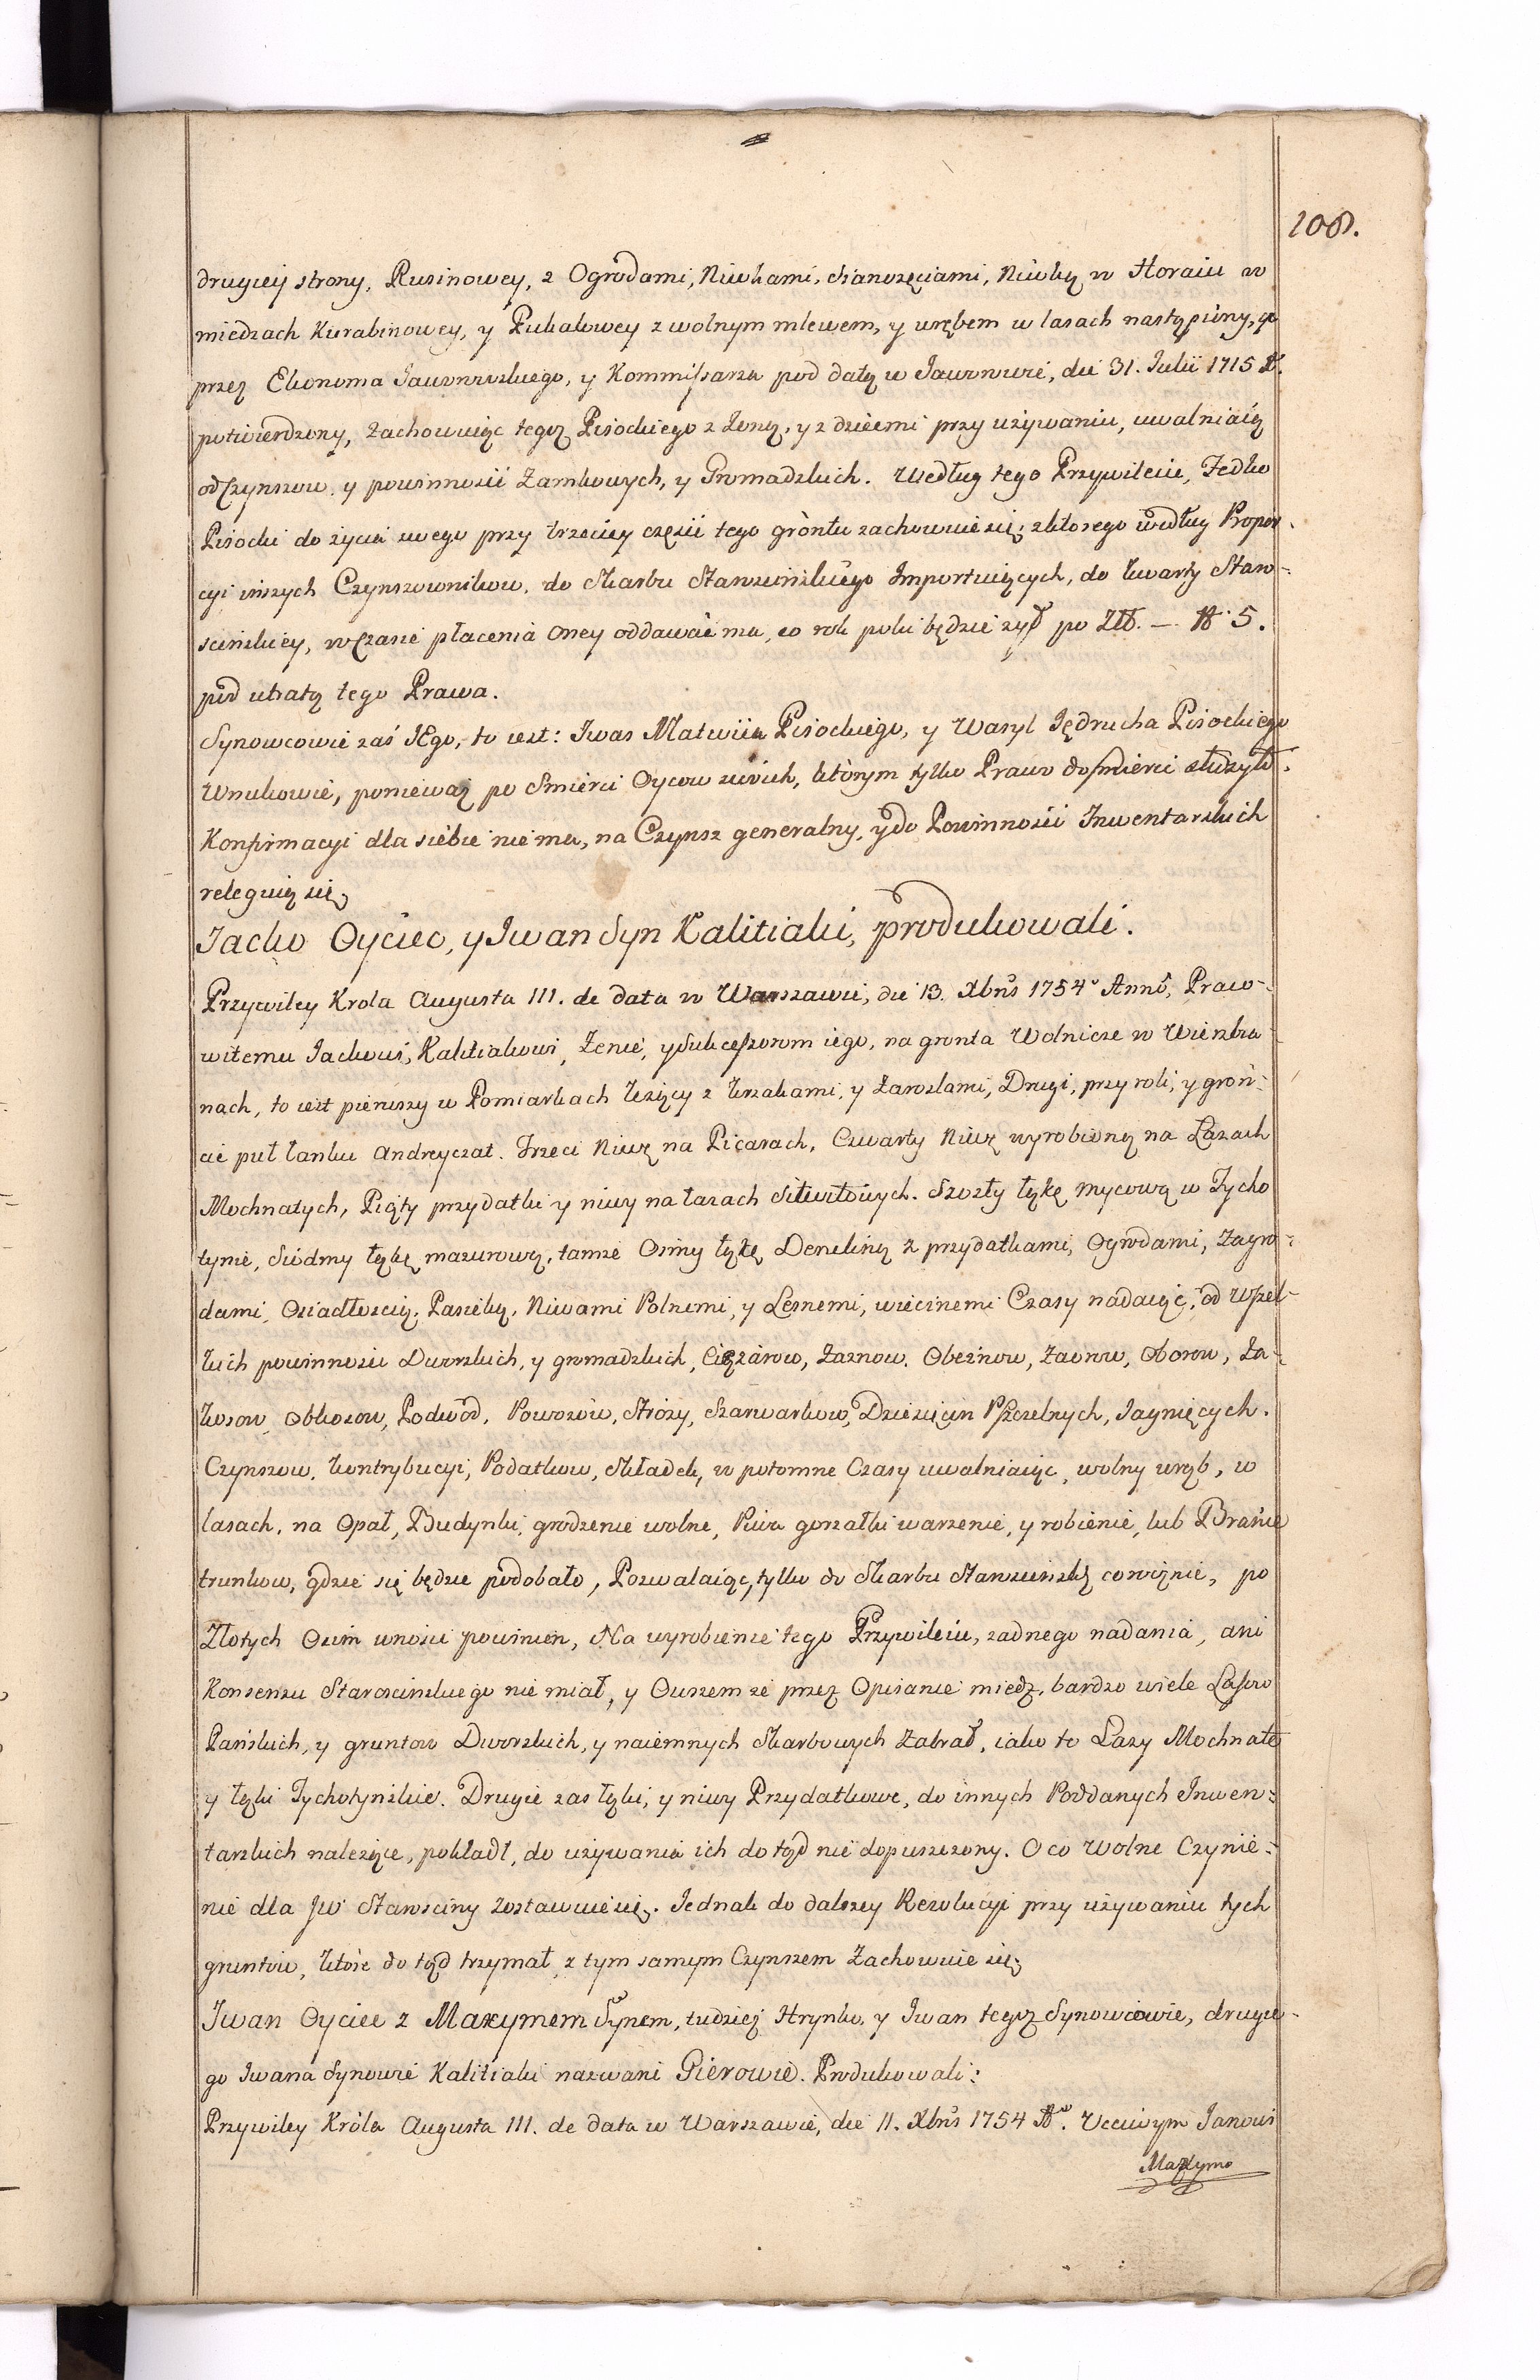 108.
drugiey strony, Rusinowey, z Ogrodami, Niwkami, sianożęciami, Niwką w Horaiu w
miedzach Kurabinowey, y Pukalowey z wolnym mlewem, y wrębem w lasach nastąpiony, y
przez Ekonoma Jaworowskiego, y Kommissarza pod datą w Jaworowie, die 31. Julii 1715 A.
potwierdzony, zachowuiąc tegoż Pisockiego z Żoną, y z dziećmi przy używaniu, uwalniaią
od Czynszow, y powinności Zamkowych, y Gromadzkich. Według tego Przywileiu, Fedko
Pisocki do życia swego przy trzeciey części tego gròntu zachowuie się, z ktorego według Propor-
cyi inszych Czynszownikow, do Skarbu Starościńskiego Importuiących, do kwarty Staro-
ścińskiey, w Czasie płacenia oney oddawać ma, co rok poki będzie żył po Zł. — 5.
pod utratą tego Prawa.
Synowcowie zaś JEgo, to iest: Iwas Matwiia Pisockiego, y Wasyl Jędrucha Pisockiego
Wnukowie, ponieważ po Smierci Oycow swoich, którym tylko Prawo do smierci służyło,
Konfirmacyi dla siebie nie ma, na Czynsz generalny, y do Powinności Inwentarskich
releguią się.
Jacko Oyciec, y Iwan Syn Kalitiaki, produkowali.
Przywiley Krola Augusta III. de data w Warszawie, die 13. Xbris 1754 Anno, Praco-
witemu Jackowi, Kalitiakowi, Żenie, y Sukcessorom iego, na gronta Wolnicze w Wierzbia-
nach, to iest pierwszy w Pomiarkach leżący z krzakami, y Zaroslami, Drugi, przy roli, y groń-
cie puł łanku Andreyczat. Trzeci Niwę na Picarach, Czwarty Niwę wyrobioną na Łazach
Mochnatych, Piąty przydatki y niwy na łazach Sitwitowych. Szosty łąkę Mycową w Tycho
tynie, Siódmy łąkę mazurową, tamże Osmy łąkę Denekinę z przydatkami, Ogrodami, Zagro-
dami, Osiadłością, Pasieką, Niwami Polnemi, y Lesnemi, wiecznemi Czasy nadaiąc, od Wszel-
kich powinności Dworskich, y gromadzkich, Ciężarow, Zaznow, Obeżnow, Zaorow, Oborow, Za-
kosow, Obkosow, Podwód, Powozów, Stroży, Szarwarkow, Dziesięcin Pszczelnych, Jagnięcych.
Czynszow, kontrybucyi, Podatkow, Składek, w potomne Czasy uwalniaiąc, wolny wręb, w
lasach, na Opał, Budynki, grodzenie wolne, Piwa gorzałki warzenie, y robienie, lub Branie
trunkow, gdzie się będzie podobało, Pozwalaiąc, tylko do Skarbu Starościnską corocznie, po
Złotych Ośm wnosić powinien, Na wyrobienie tego Przywileiu, zadnego nadania, ani
Konsensu Starościnskiego nie miał, y Owszem ze przez Opisanie miedz, bardzo wiele Lasow
Pańskich, y gruntow Dworskich, y naiemnych Skarbowych Zabrał, iako to Łazy Mochnate
y łąki Tychotynskie. Drugie zas łąki, y niwy Przydatkowe, do innych Poddanych Inwen-
tarskich należące, pokładł, do używania ich dotąd nie dopuszczony. O co wolne Czynie-
nie dla JW Starosciny zostawuie się. Jednak do dalszey Rezolucyi przy używaniu tych
gruntow, które do tąd trzymał, z tym samym Czynszem Zachowuie się.
Iwan Oyciec z Maxymem Synem, tudzież Hrynko, y Iwan tegoż Synowcowie, drugie-
go Iwana Synowie Kalitiaki nazwani Gierowie. Produkowali:
Przywiley Króla Augusta III. de data w Warszawie, die 11. Xbris 1754 A. Uczciwym Janowi
Maxymo